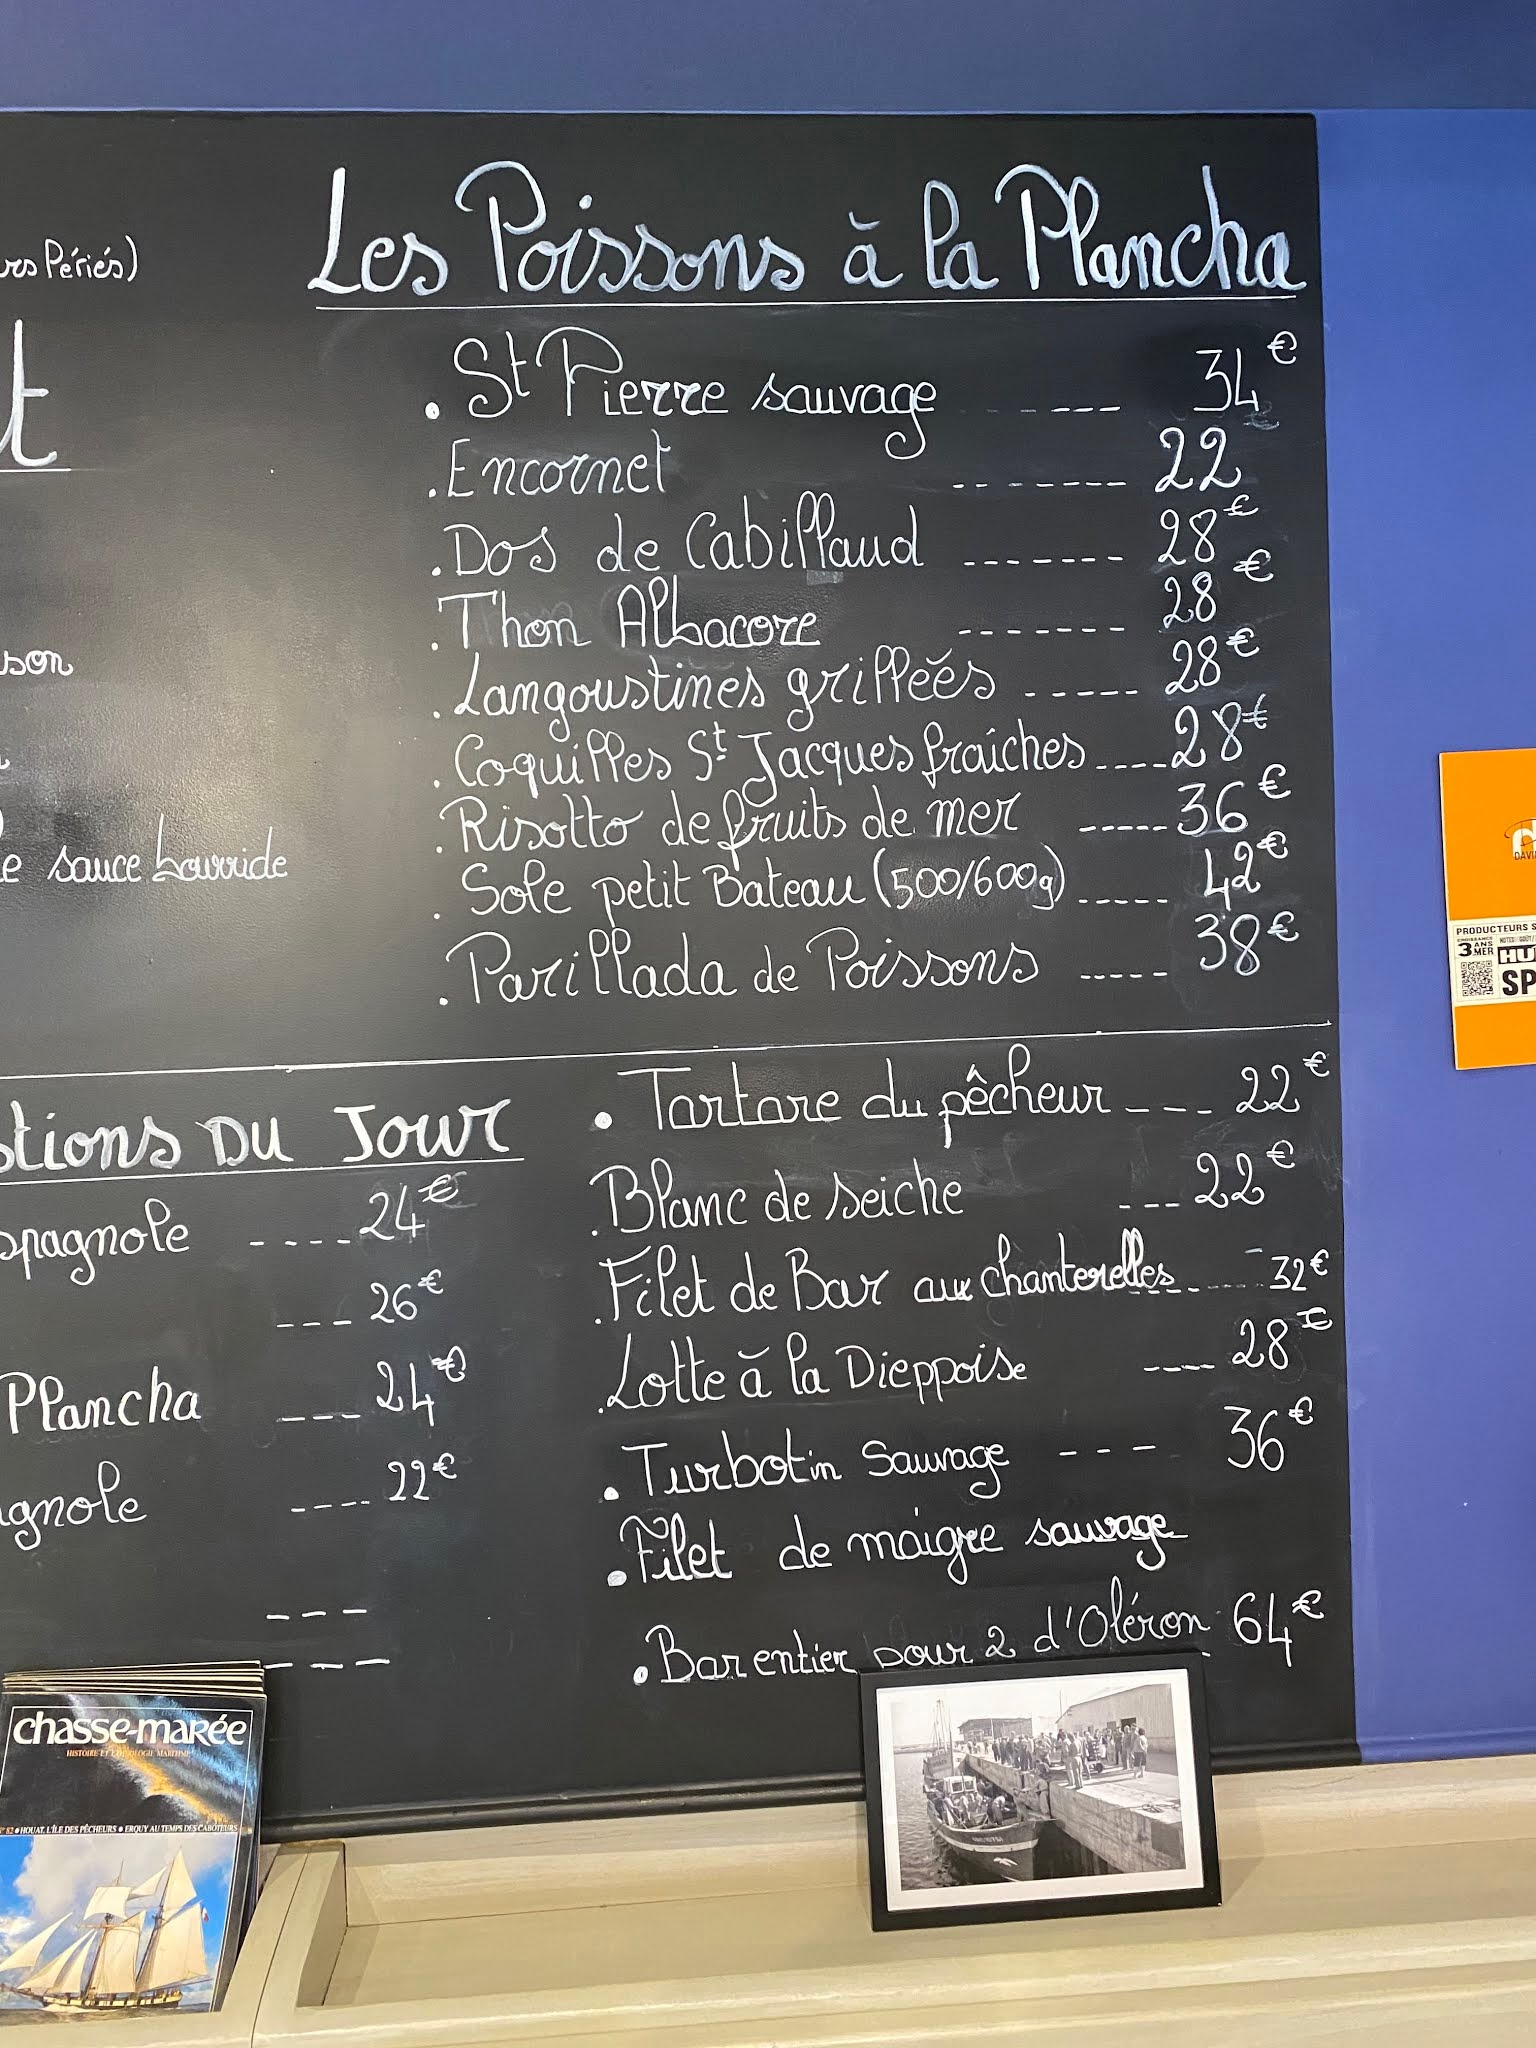 rs Périés)
t
son
e sauce bourride
Les Poissons à la Plancha
. St Pierre sauvage ------ 34€
. Encornet ------- 22
. Dos de Cabillaud ------- 28€
. Thon Albacore ------- 28€
. Langoustines grillées ----- 28€
. Coquilles St Jacques fraiches ---- 28€
. Risotto de fruits de mer ----- 36€
. Sole petit Bateau (500/600g) ----- 42€
. Parillada de Poissons ----- 38€
stions du Jour
spagnole ---- 24€
--- 26€
Plancha --- 24€
agnole ---- 22€
---
---
. Tartare du pêcheur --- 22€
. Blanc de seiche --- 22€
. Filet de Bar aux chanterelles ------ 32€
. Lotte à la Dieppoise ---- 28€
. Turbotin Sauvage --- 36€
. Filet de maigre sauvage
. Bar entier pour 2 d'Oléron 64€
chasse-marée
HISTOIRE ET ETHNOLOGIE MARITIME
N° 82 • HOUAT, L'ÎLE DES PÊCHEURS • ERQUY AU TEMPS DES CABOTEURS
DAVI
PRODUCTEURS
CROISSANCE
3 ANS
MER
HU
SP